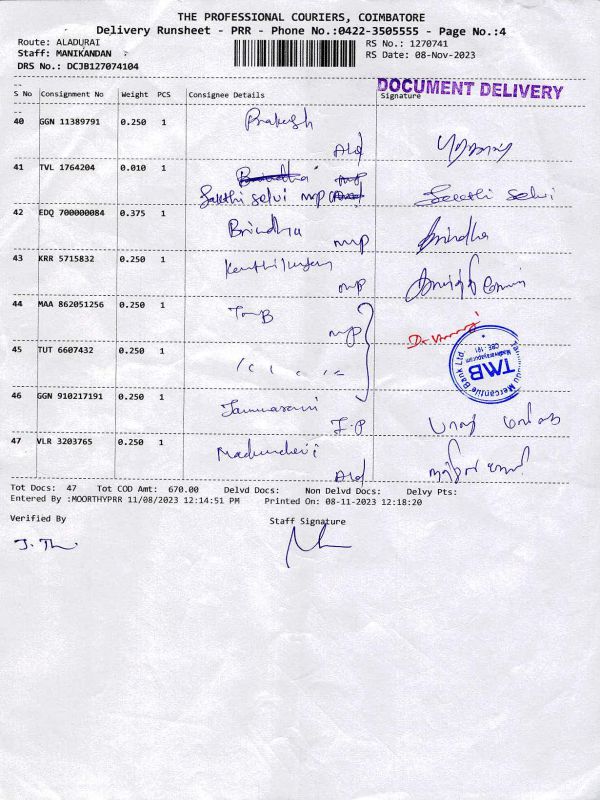 THE PROFESSIONAL COURIERS, COIMBATORE
Delivery Runsheet - PRR - Phone No.:0422-3505555 - Page No.:4
Route: ALADURAI
RS No.: 1270741
Staff: MANIKANDAN
RS Date: 08-Nov-2023
DRS No.: DCJB127074104
DOCUMENT DELIVERY
S No Consignment No Weight PCS Consignee Details Signature
40 GGN 11389791 0.250 1 Prakash
41 TVL 1764204 0.010 1 Brindha
Sakthi Selvi MP Sakthi Selvi
42 EDQ 700000084 0.375 1 Brindha MP Brindha
43 KRR 5715832 0.250 1 MP
44 MAA 862051256 0.250 1 TMB MP
Tamilnad Mercantile Bank Ltd.
TMB
CBE - 191
45 TUT 6607432 0.250 1
46 GGN 910217191 0.250 1
47 VLR 3203765 0.250 1
Tot Docs: 47 Tot COD Amt: 670.00 Delvd Docs: Non Delvd Docs: Delvy Pts:
Entered By :MOORTHYPRR 11/08/2023 12:14:51 PM Printed On: 08-11-2023 12:18:20
Verified By Staff Signature